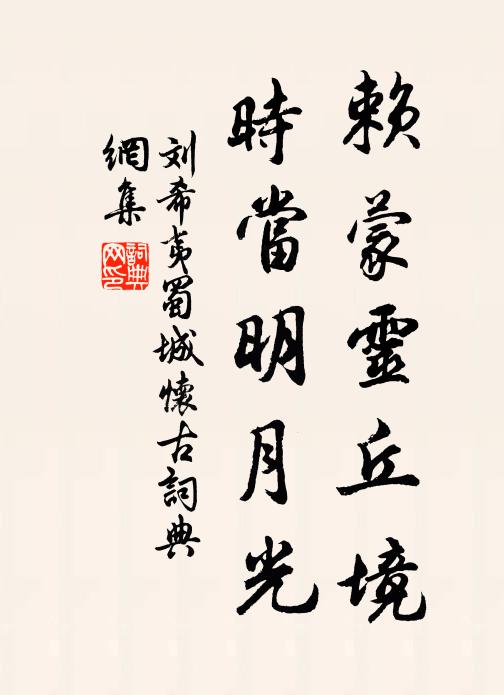 賴蒙靈丘境
時當明月光
刘希夷蜀城懷古詞典
網集
詞典
网印